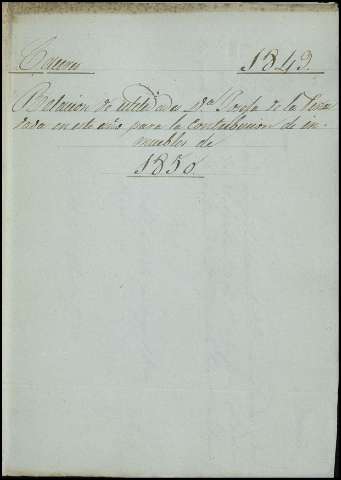 Cáceres 1849.
Relacion de utilidades Dª Josefa de la
dada en este año para la contribucion de in-
muebles de
1850.